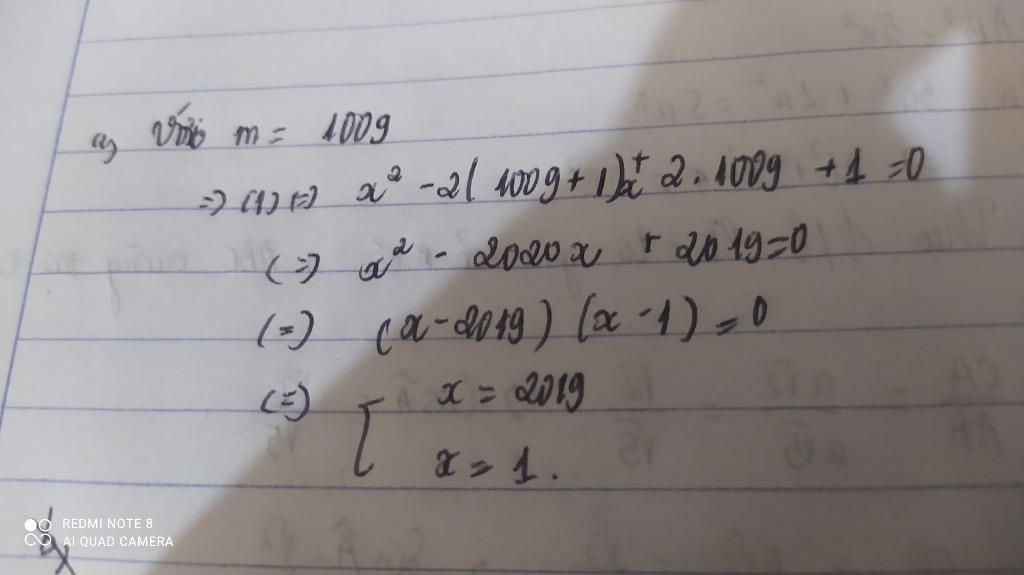 a, Với m = 1009
=> (1) <=> x² - 2(1009+1)x + 2.1009 + 1 = 0
<=> x² - 2020x + 2019 = 0
<=> (x - 2019) (x - 1) = 0
<=> [ x = 2019
x = 1.
REDMI NOTE 8
AI QUAD CAMERA